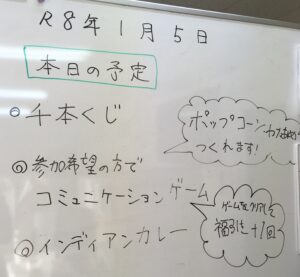 R8年1月5日
本日の予定
◎千本くじ
ポップコーン、わたあめ
つくれます!
◎参加希望の方で
コミュニケーションゲーム
ゲームをクリアして
福引き+1回
◎インディアンカレー